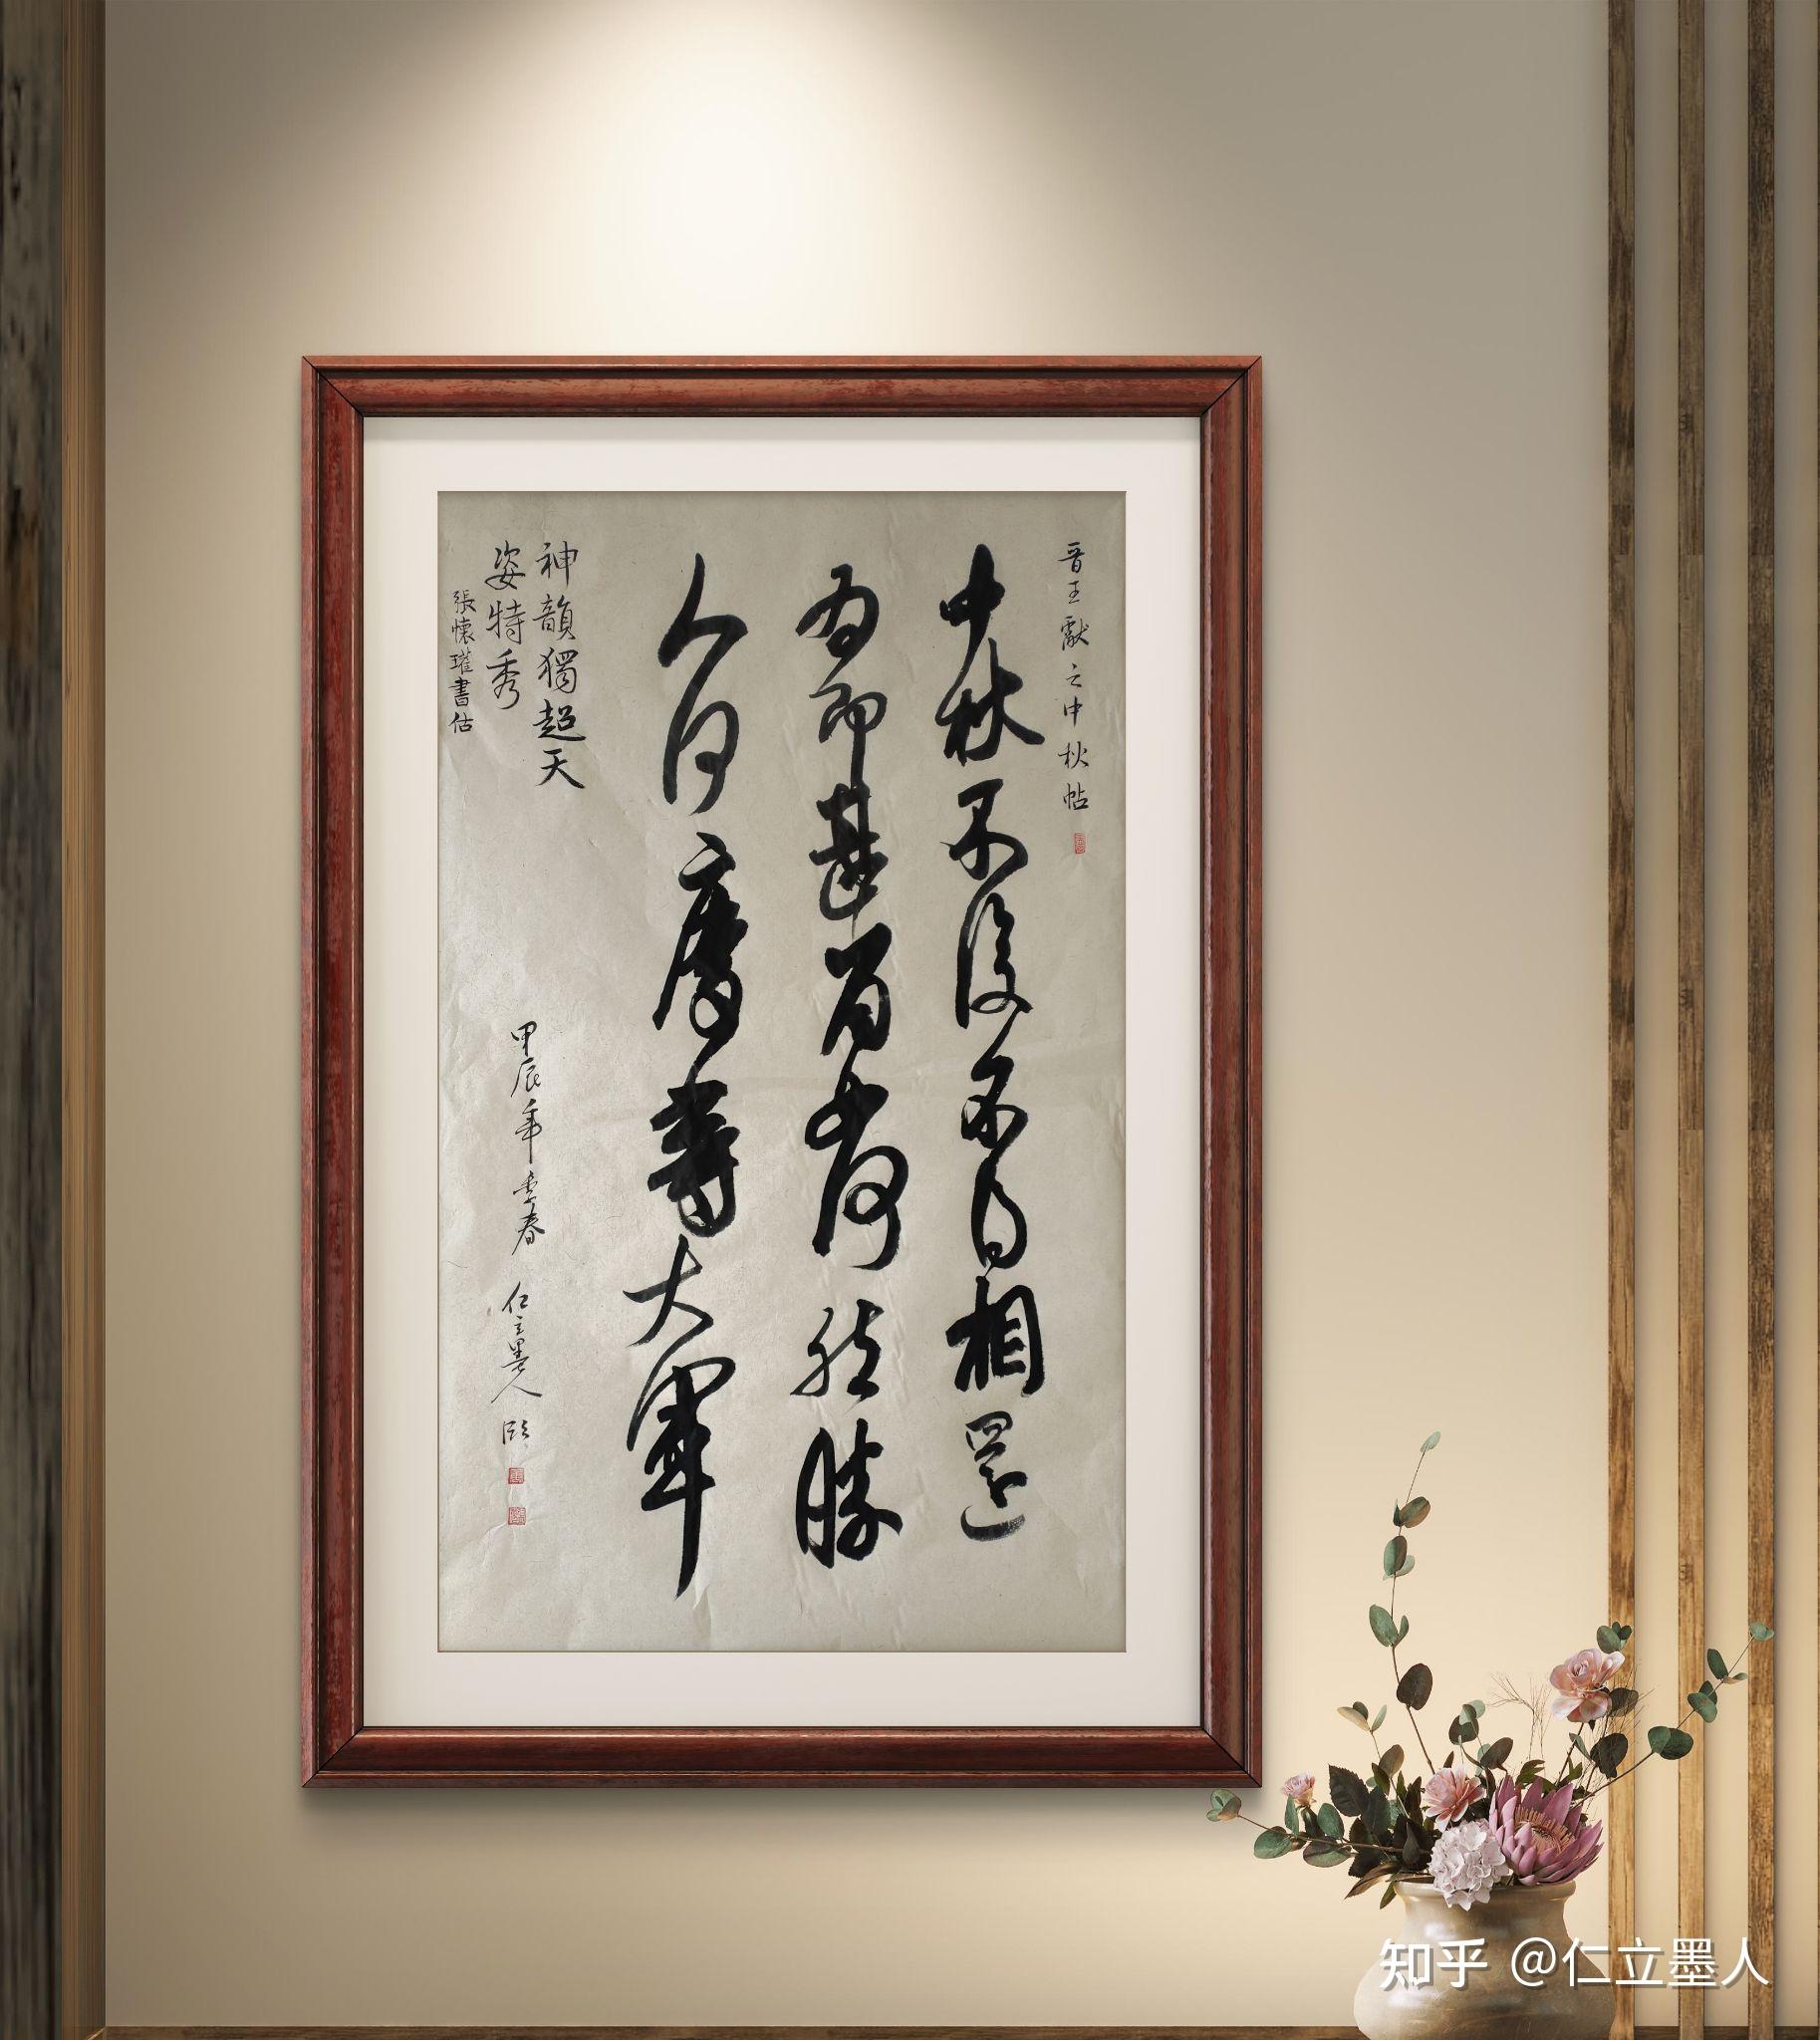 晋王獻之中秋帖
中秋不復不得相還
為即甚省如何然勝
人何慶等大軍
神韻獨超天
姿特秀
張懷瓘書估
甲辰年季春 仁立墨人 臨
知乎 @仁立墨人